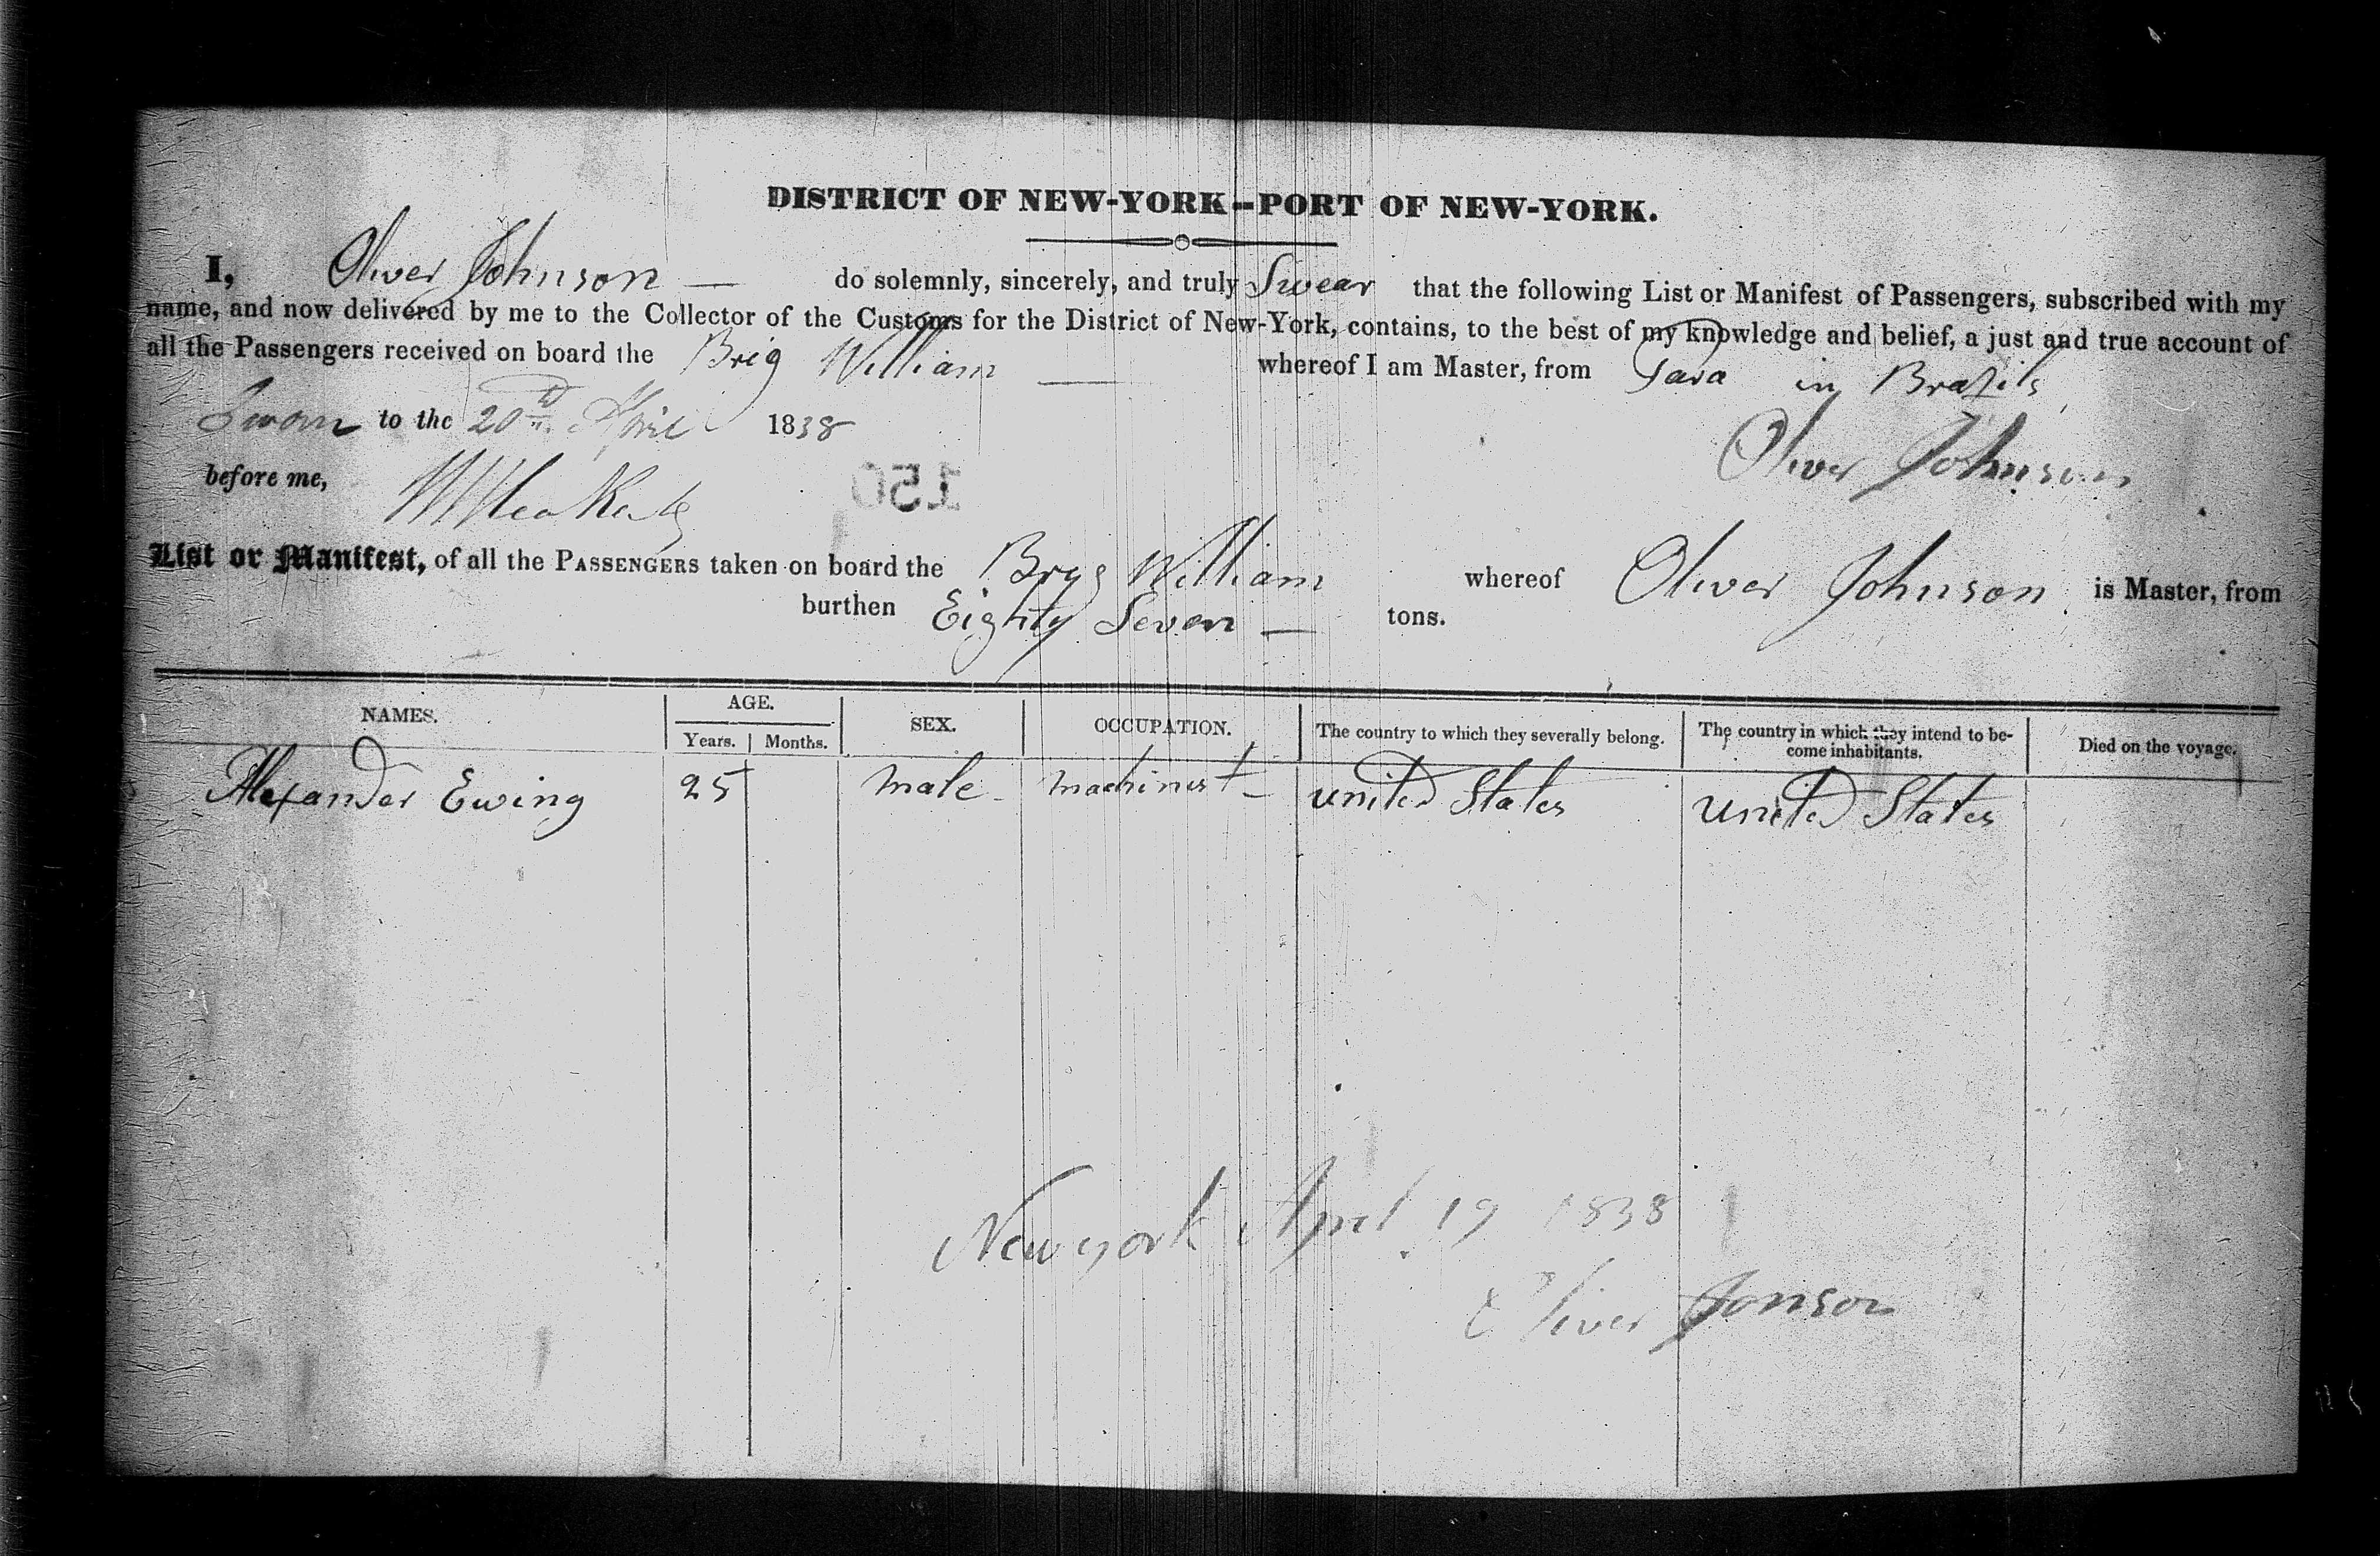 DISTRICT OF NEW-YORK--PORT OF NEW-YORK.
I, Oliver Johnson — do solemnly, sincerely, and truly Swear that the following List or Manifest of Passengers, subscribed with my
name, and now delivered by me to the Collector of the Customs for the District of New-York, contains, to the best of my knowledge and belief, a just and true account of
all the Passengers received on board the Brig William — whereof I am Master, from Para in Brazils
Sworn to the 20th April 1838
Oliver Johnson
before me,
150
List or Manifest, of all the PASSENGERS taken on board the Brig William whereof Oliver Johnson is Master, from
burthen Eighty Seven — tons.
NAMES. AGE. SEX. OCCUPATION. The country to which they severally belong. The country in which they intend to be-
come inhabitants. Died on the voyage.
Years. Months.
Alexander Ewing 25 male machinist united States united States
New york April 19 1838
Oliver Jonson